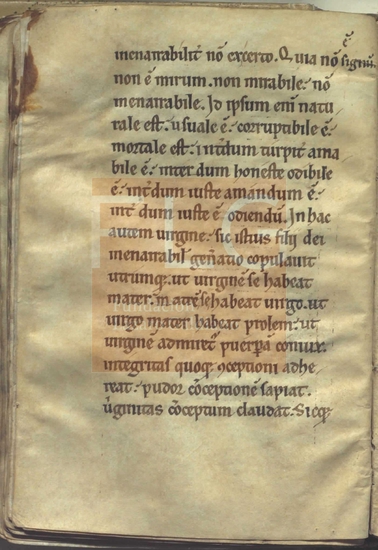 ē
inenarrabilit᷒ nō exerto. Quia nō signū.
non ē mirum. non mirabile. nō
inenarrabile. Id ipsum eni᷒ natu
rale est. usuale ē. corruptibile ē.
mortale est. int᷒dum turpit᷒ ama
bile ē. inter dum honeste odibile
ē. int᷒dum iuste amandum ē.
int᷒ dum iuste ē odiendū. In hac
autem uirgine. sic istius filij dei
inenarrabil᷒ gen᷒atio copulauit
utrumq;. ut uirginē se habeat
mater. matrē se habeat uirgo. ut
uirgo mater habeat prolem. ut
uirginē admiret᷒ puerpᷓa coniux.
integritas quoq; ꝯceptioni adhe
reat. pudor cōceptionē sapiat.
uirginitas cōceptum claudat. Sicq;
FLG
Fundación